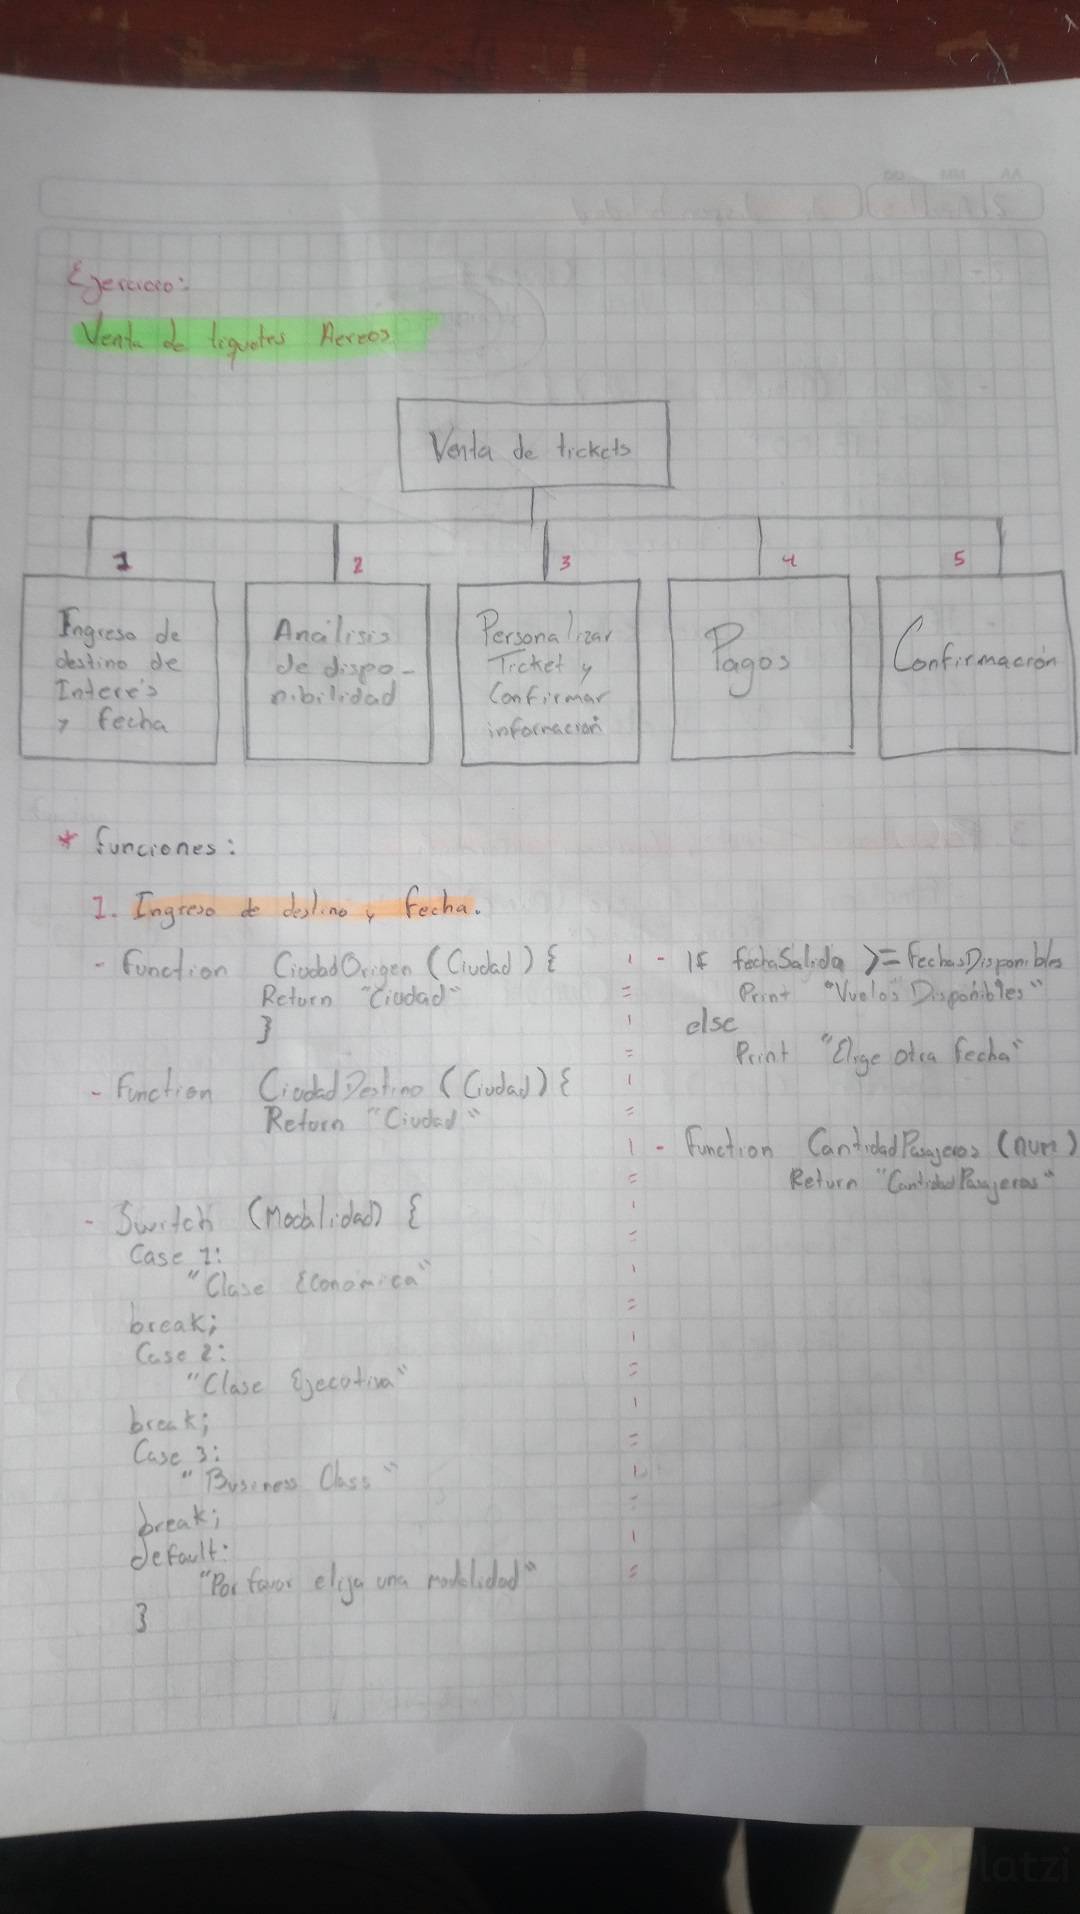 Ejercicio:
Venta de tiquetes Aereos
Venta de tickets
1
Ingreso de
destino de
Interés
y fecha
2
Análisis
de dispo-
nibilidad
3
Personalizar
Ticket y
Confirmar
información
4
Pagos
5
Confirmación
* funciones:
1. Ingreso de destino y fecha.
- function CiudadOrigen (Ciudad) {
Return "Ciudad"
}
- function CiudadDestino (Ciudad) {
Return "Ciudad"
- Switch (Modalidad) {
Case 1:
"Clase Economica"
break;
Case 2:
"Clase Ejecutiva"
break;
Case 3:
"Business Class"
break;
default:
"Por favor elija una modalidad"
}
- If fechaSalida >= fechasDisponibles
Print "Vuelos Disponibles"
else
Print "Elige otra fecha"
- function CantidadPasajeros (num)
Return "CantidadPasajeros"